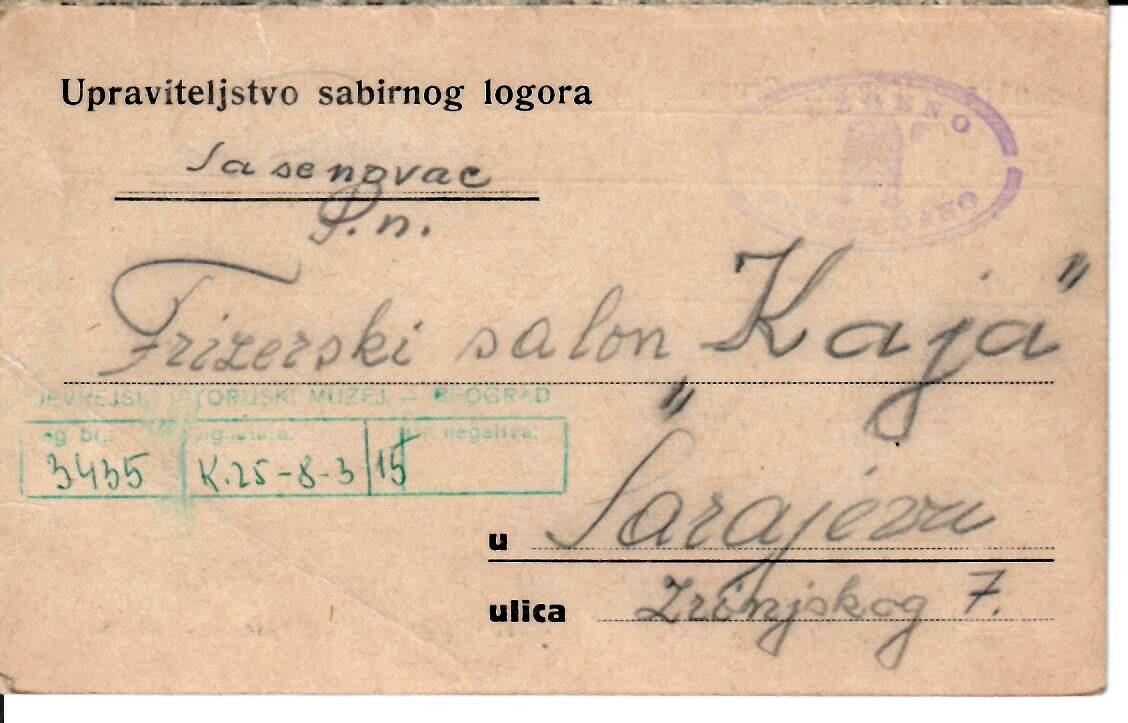 Upraviteljstvo sabirnog logora
Jasenovac
P.n.
Frizerski salon "Kaja"
JEVREJSKI ISTORIJSKI MUZEJ – BEOGRAD
negativa:
3435 K.25-8-3/15
u Sarajevu
ulica Zrinjskog 7.